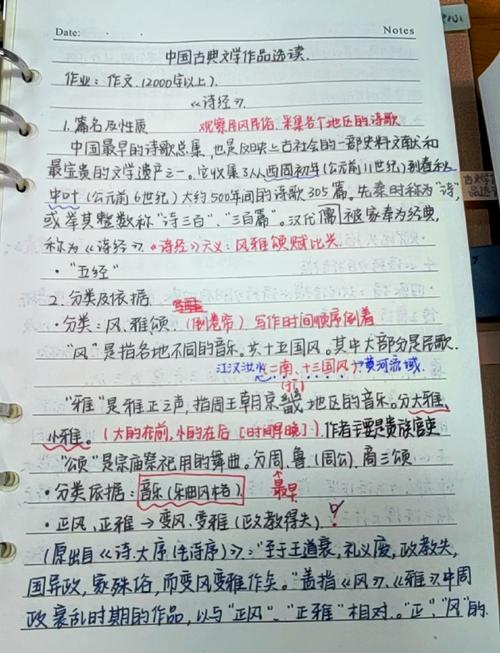 Date:
Notes
中国古典文学作品选读.
作业：作文.(2000字以上).
《诗经》.
1. 篇名及性质 观察民风民俗.采集各个地区的诗歌
中国最早的诗歌总集，也是反映上古社会的一部史料文献和
最宝贵的文学遗产之一。它收集了从西周初年(公元前11世纪)到春秋
中叶(公元前6世纪)大约500年间的诗歌305篇。先秦时称为"诗",
或举其整数称"诗三百"、"三百篇"。汉代儒家奉为经典,
称为《诗经》.《诗经》六义:风雅颂赋比兴.
·"五经"
2. 分类及依据.
·分类：风、雅颂.(倒卷帘) 写作时间顺序倒着
"风"是指各地不同的音乐。共十五国风。其中大部分是民歌.
江汉流域(二南、十三国风)黄河流域.
"雅"是雅正之声，指周王朝京畿地区的音乐。分大雅,
小雅。(大的在前,小的在后[时间早晚]).作者主要是贵族官吏
"颂"是宗庙祭祀用的舞曲。分周、鲁(周公)、商三颂.
·分类依据：音乐(乐曲风格) 最早
·正风、正雅→变风、变雅(政教得失)
(原出自《诗·大序(毛诗序)》："至于王道衰,礼义废,政教失,
国异政,家殊俗,而变风变雅作矣。"盖指《风》、《雅》中周
政衰乱时期的作品，以与"正风"、"正雅"相对。"正"、"风"的